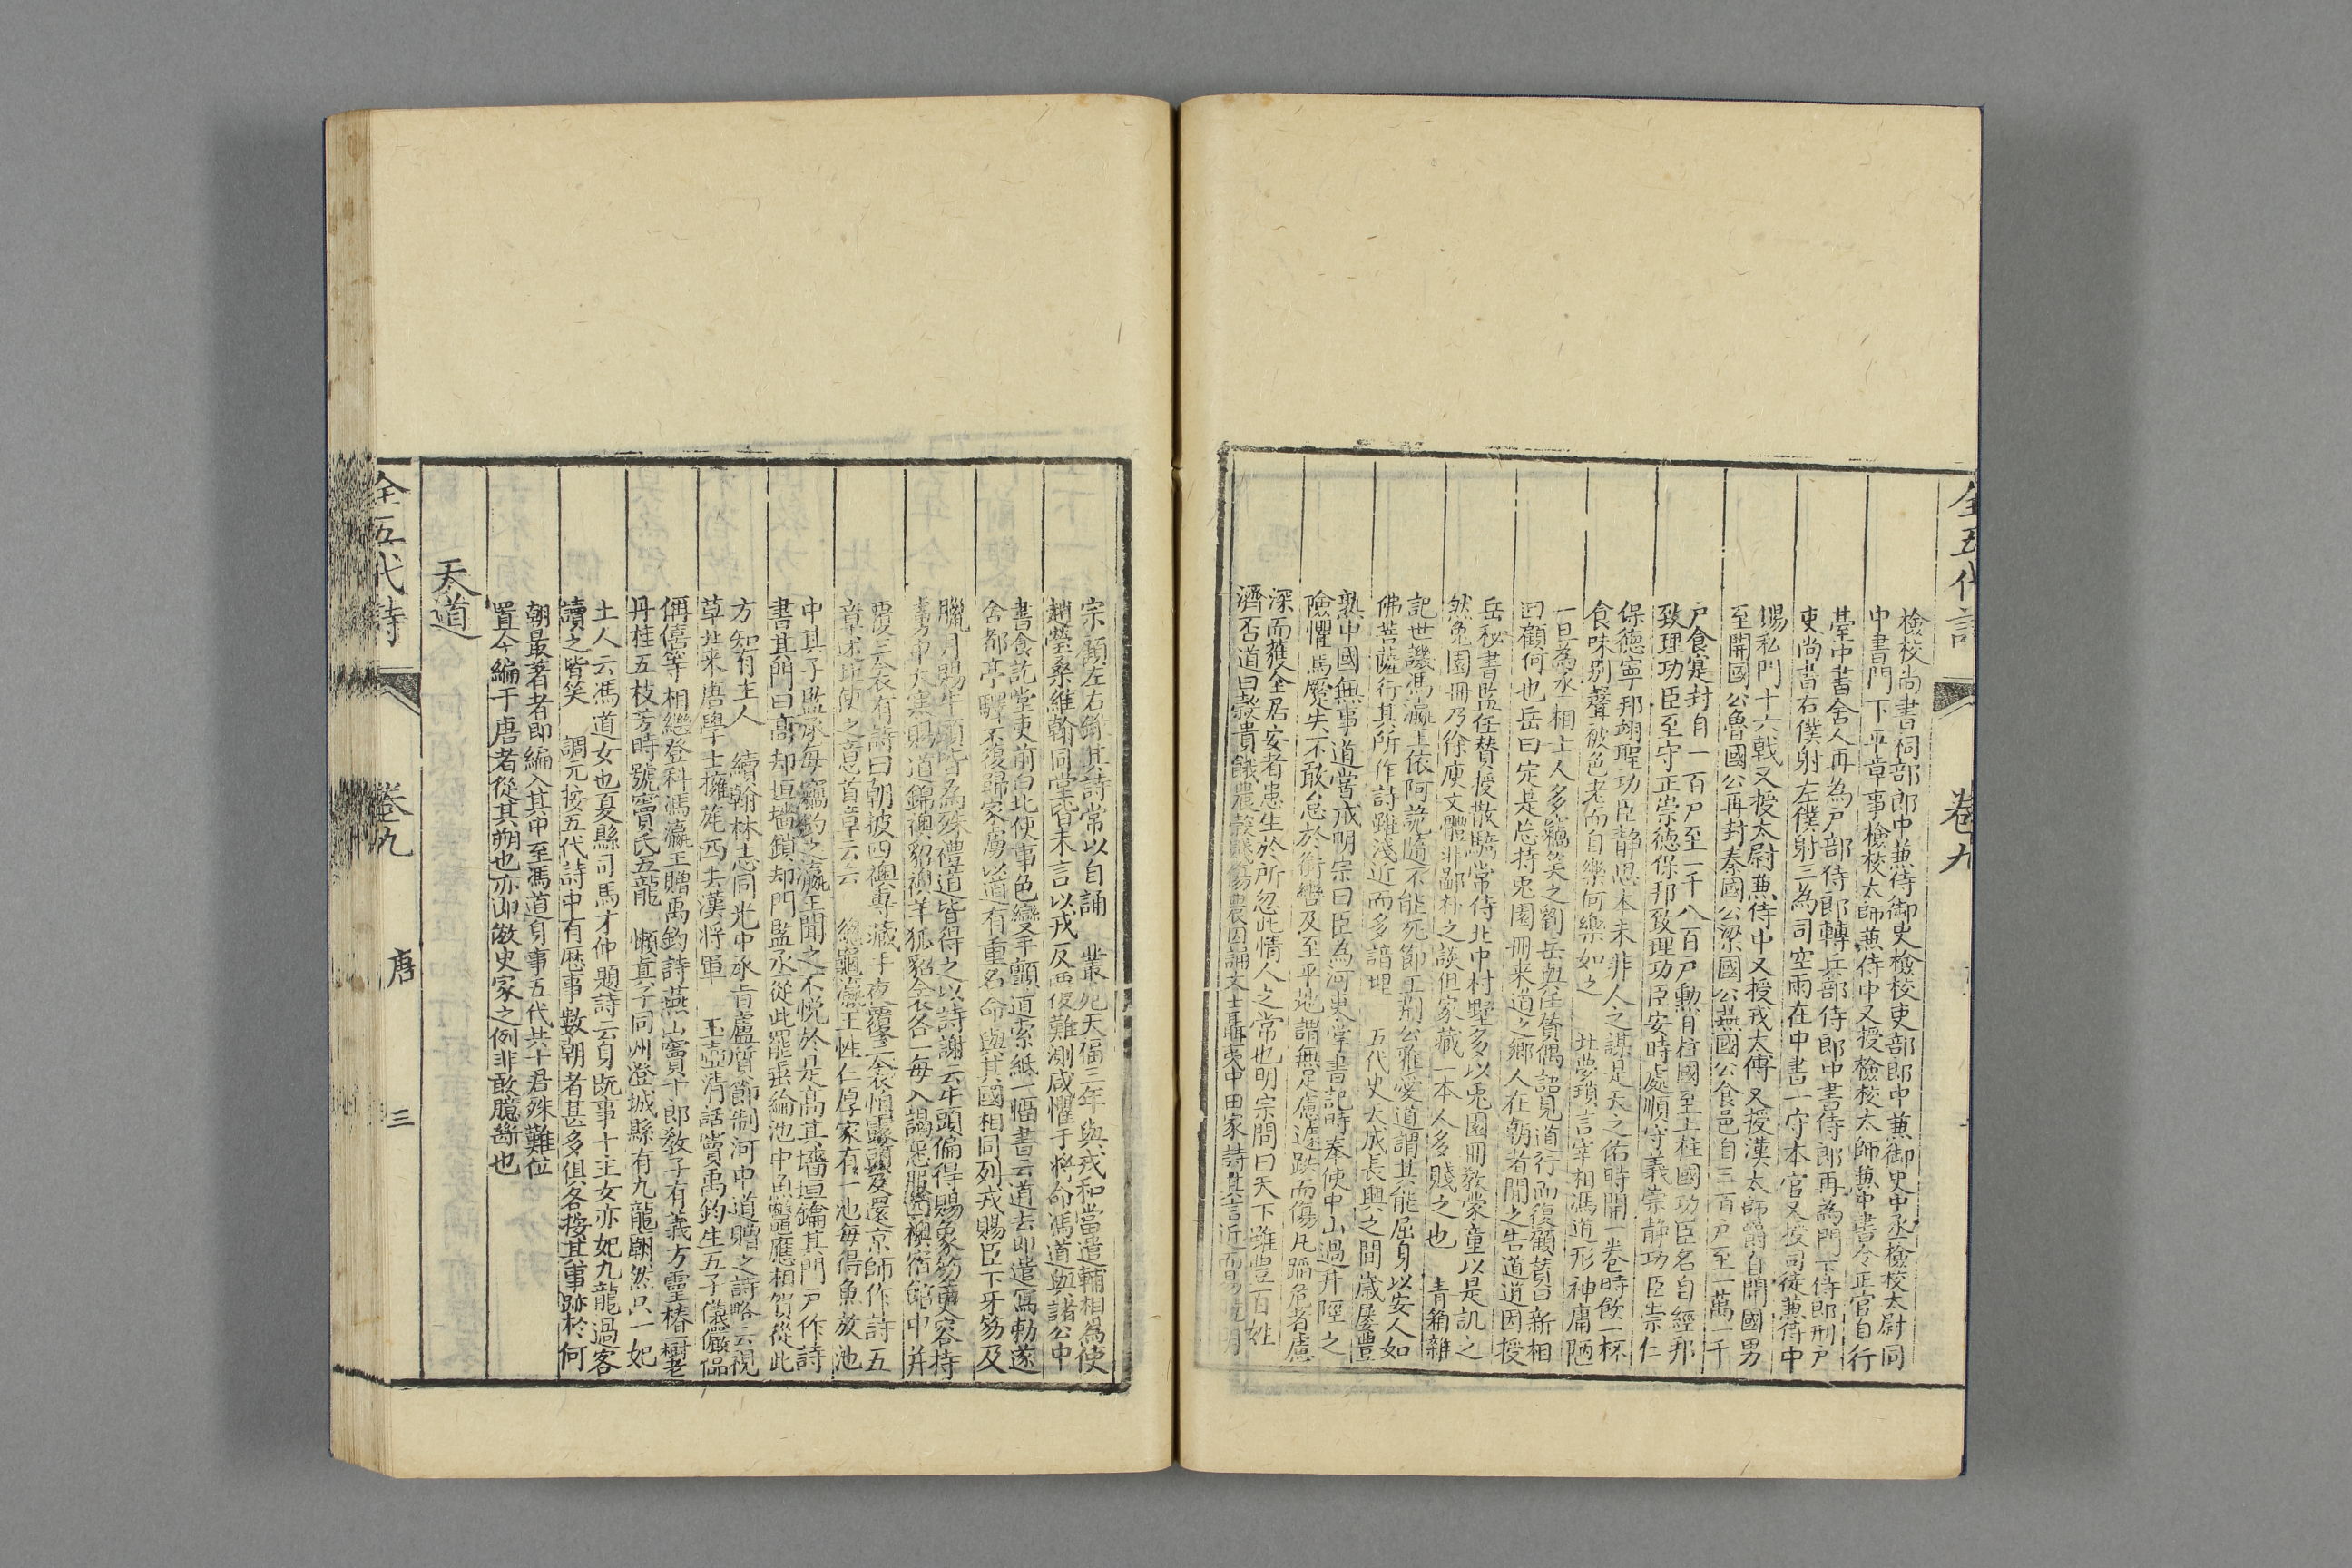 全五代詩 卷九
檢校尚書祠部郎中兼侍御史檢校吏部郎中兼御史中丞檢校太尉同
中書門下平章事檢校太師兼侍中又授檢校太師兼中書令正官自行
臺中書舍人再為戶部侍郎轉兵部侍郎中書侍郎再為門下侍郎刑戶
吏尚書右僕射左僕射三為司空兩在中書一守本官又授司徒兼侍中
賜私門十六戟又授太尉兼侍中又授戎太傅又授漢太師爵自開國男
至開國公魯國公再封秦國公梁國公燕國公食邑自三百戶至一萬一千
戶食寔封自一百戶至一千八百戶勳自柱國至上柱國功臣名自經邦
致理功臣至守正崇德保邦致理功臣安時處順守義崇静功臣崇仁
保德寧邦翊聖功臣静思本末非人之謀是天之佑時開一卷時飲一杯
食味別聲被色老而自樂何樂如之 北夢瑣言宰相馮道形神庸陋
一旦為丞相士人多竊笑之劉岳與任贊偶語見道行而復顧贊曰新相
囘顧何也岳曰定是忘持兎園冊来道之鄉人在朝者聞之告道道因授
岳秘書監任贊授散騎常侍北中村墅多以兎園冊教蒙童以是訊之
然兔園冊乃徐庾文體非鄙朴之談但家藏一本人多賤之也 青箱雜
記世譏馮瀛王依阿詭隨不能死節王荆公雅愛道謂其能屈身以安人如
佛菩薩行其所作詩雖淺近而多諳理 五代史天成長興之間歲屢豐
熟中國無事道嘗戒明宗曰臣為河東掌書記時奉使中山過井陘之
險懼馬蹶失不敢怠於銜轡及至平地謂無足慮遽跌而傷凡蹈危者慮
深而獲全居安者患生於所忽此情人之常也明宗問曰天下雖豊百姓
濟否道曰穀貴餓農穀賤傷農因誦文士聶夷中田家詩其言近而易曉明
宗顧左右録其詩常以自誦 叢苑天福三年與戎和當遣輔相為使
趙瑩桑維翰同堂皆未言以戎反覆難測咸懼于将命馮道與諸公中
書食訖堂吏前白北使事色變手顫道索紙一幅書云道去即遣寫勅遂
舍都亭驛不復歸家虜以道有重名命與其國相同列戎賜臣下牙笏及
臘月賜牛頭皆為殊禮道皆得之以詩謝云牛頭偏得賜象笏更容持
虜中大寒賜道錦襖貂襖羊狐貂衾各一每入謁悉服四襖宿館中并
覆三衾有詩曰朝披四襖專藏手夜覆三衾怕露頭及還京師作詩五
章述北使之意首章云云 總龜瀛王性仁厚家有一池每得魚放池
中其子監丞每竊釣之瀛王聞之不悅於是高其墻垣鑰其門戶作詩
書其門曰高却垣墻鎖却門監丞從此罷垂綸池中魚鱉應相賀從此
方知有主人 續翰林志同光中承旨盧質節制河中道贈之詩略云視
草北来唐學士擁旄西去漢将軍 玉壺清話竇禹鈞生五子儀儼侃
偁僖等相繼登科馮瀛王贈禹鈞詩燕山竇十郎教子有義方靈椿一樹老
丹桂五枝芳時號竇氏五龍 懶真子同州澄城縣有九龍廟然只一妃
土人云馮道女也夏縣司馬才仲題詩云身既事十主女亦妃九龍過客
讀之皆笑 調元按五代詩中有歷事數朝者甚多俱各按其事跡於何
朝最著者即編入其中至馮道身事五代共十君殊難位
置今編于唐者從其朔也亦山倣史家之例非敢臆斷也
天道
全五代詩 卷九 唐 三